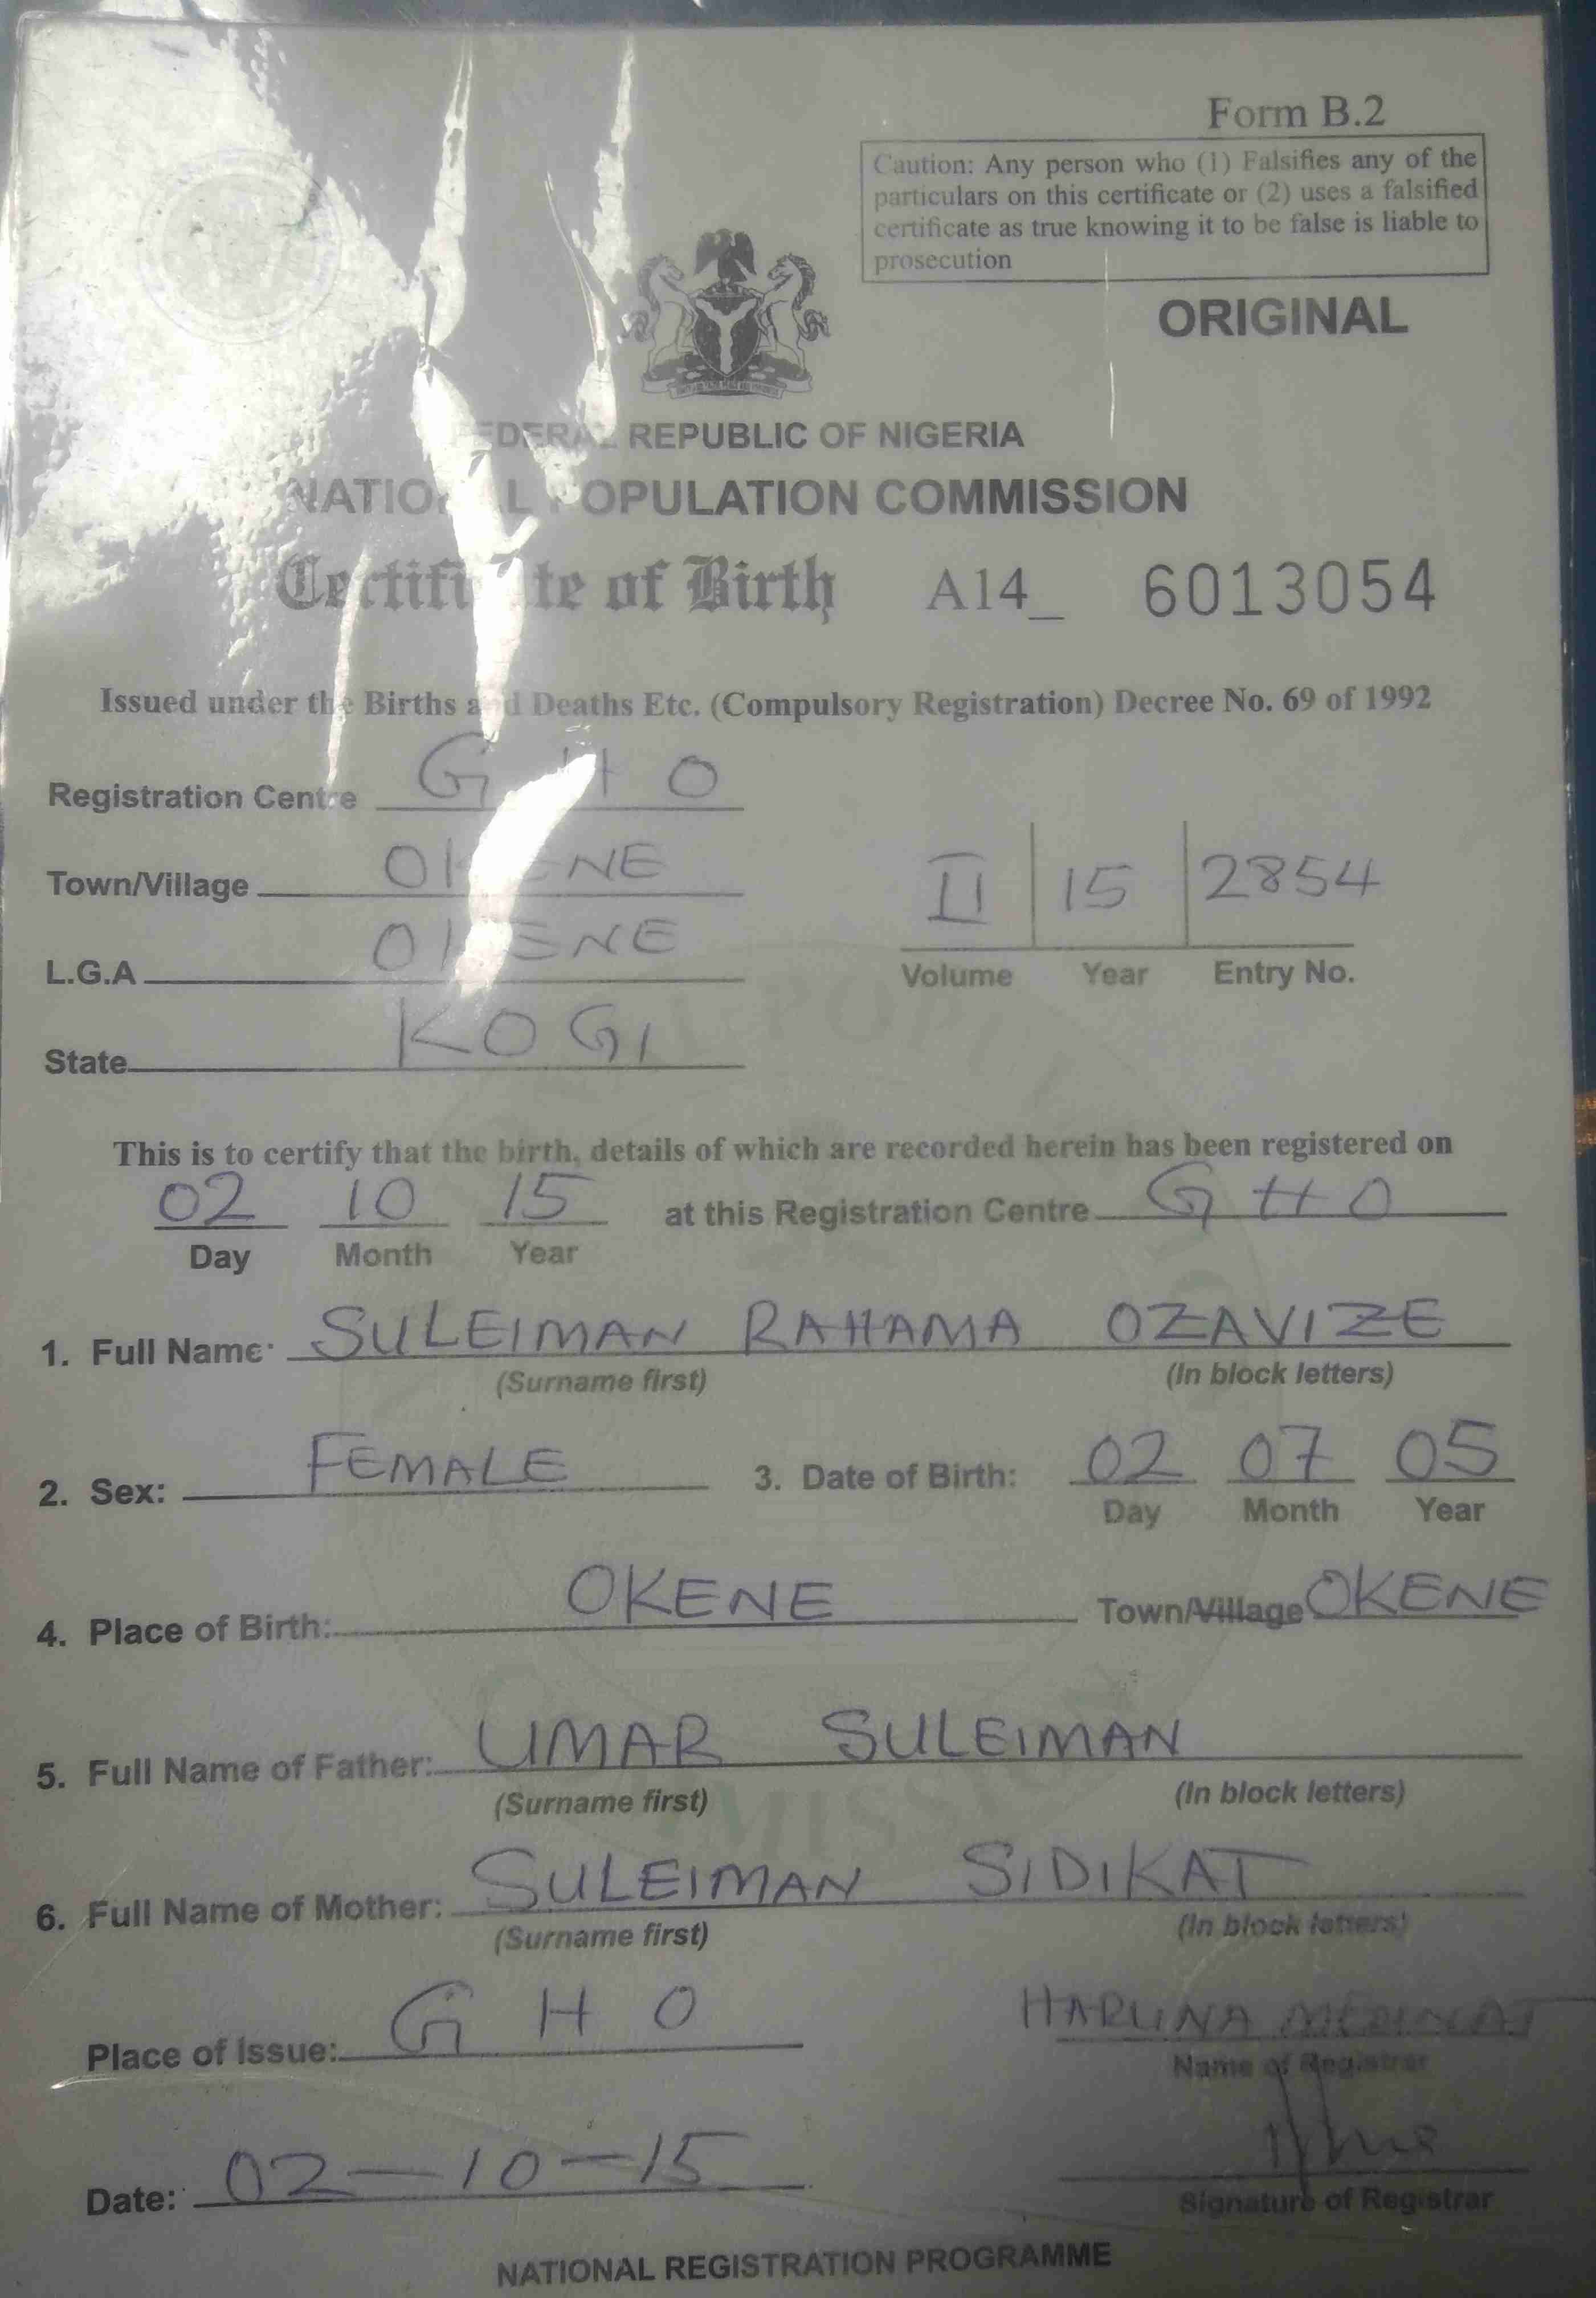 Form B.2
Caution: Any person who (1) Falsifies any of the
particulars on this certificate or (2) uses a falsified
certificate as true knowing it to be false is liable to
prosecution
ORIGINAL
FEDERAL REPUBLIC OF NIGERIA
NATIONAL POPULATION COMMISSION
Certificate of Birth A14_ 6013054
Issued under the Births and Deaths Etc. (Compulsory Registration) Decree No. 69 of 1992
Registration Centre G H O
Town/Village OKENE
L.G.A OKENE
II 15 2854
Volume Year Entry No.
State KOGI
This is to certify that the birth, details of which are recorded herein has been registered on
02 10 15 at this Registration Centre G H O
Day Month Year
1. Full Name: SULEIMAN RAHAMA OZAVIZE
(Surname first) (In block letters)
2. Sex: FEMALE 3. Date of Birth: 02 07 05
Day Month Year
4. Place of Birth: OKENE Town/Village OKENE
5. Full Name of Father: UMAR SULEIMAN
(Surname first) (In block letters)
6. Full Name of Mother: SULEIMAN SIDIKAT
(Surname first) (In block letters)
Place of Issue: G H O HARUNA MEDINAT
Name of Registrar
Date: 02-10-15
Signature of Registrar
NATIONAL REGISTRATION PROGRAMME